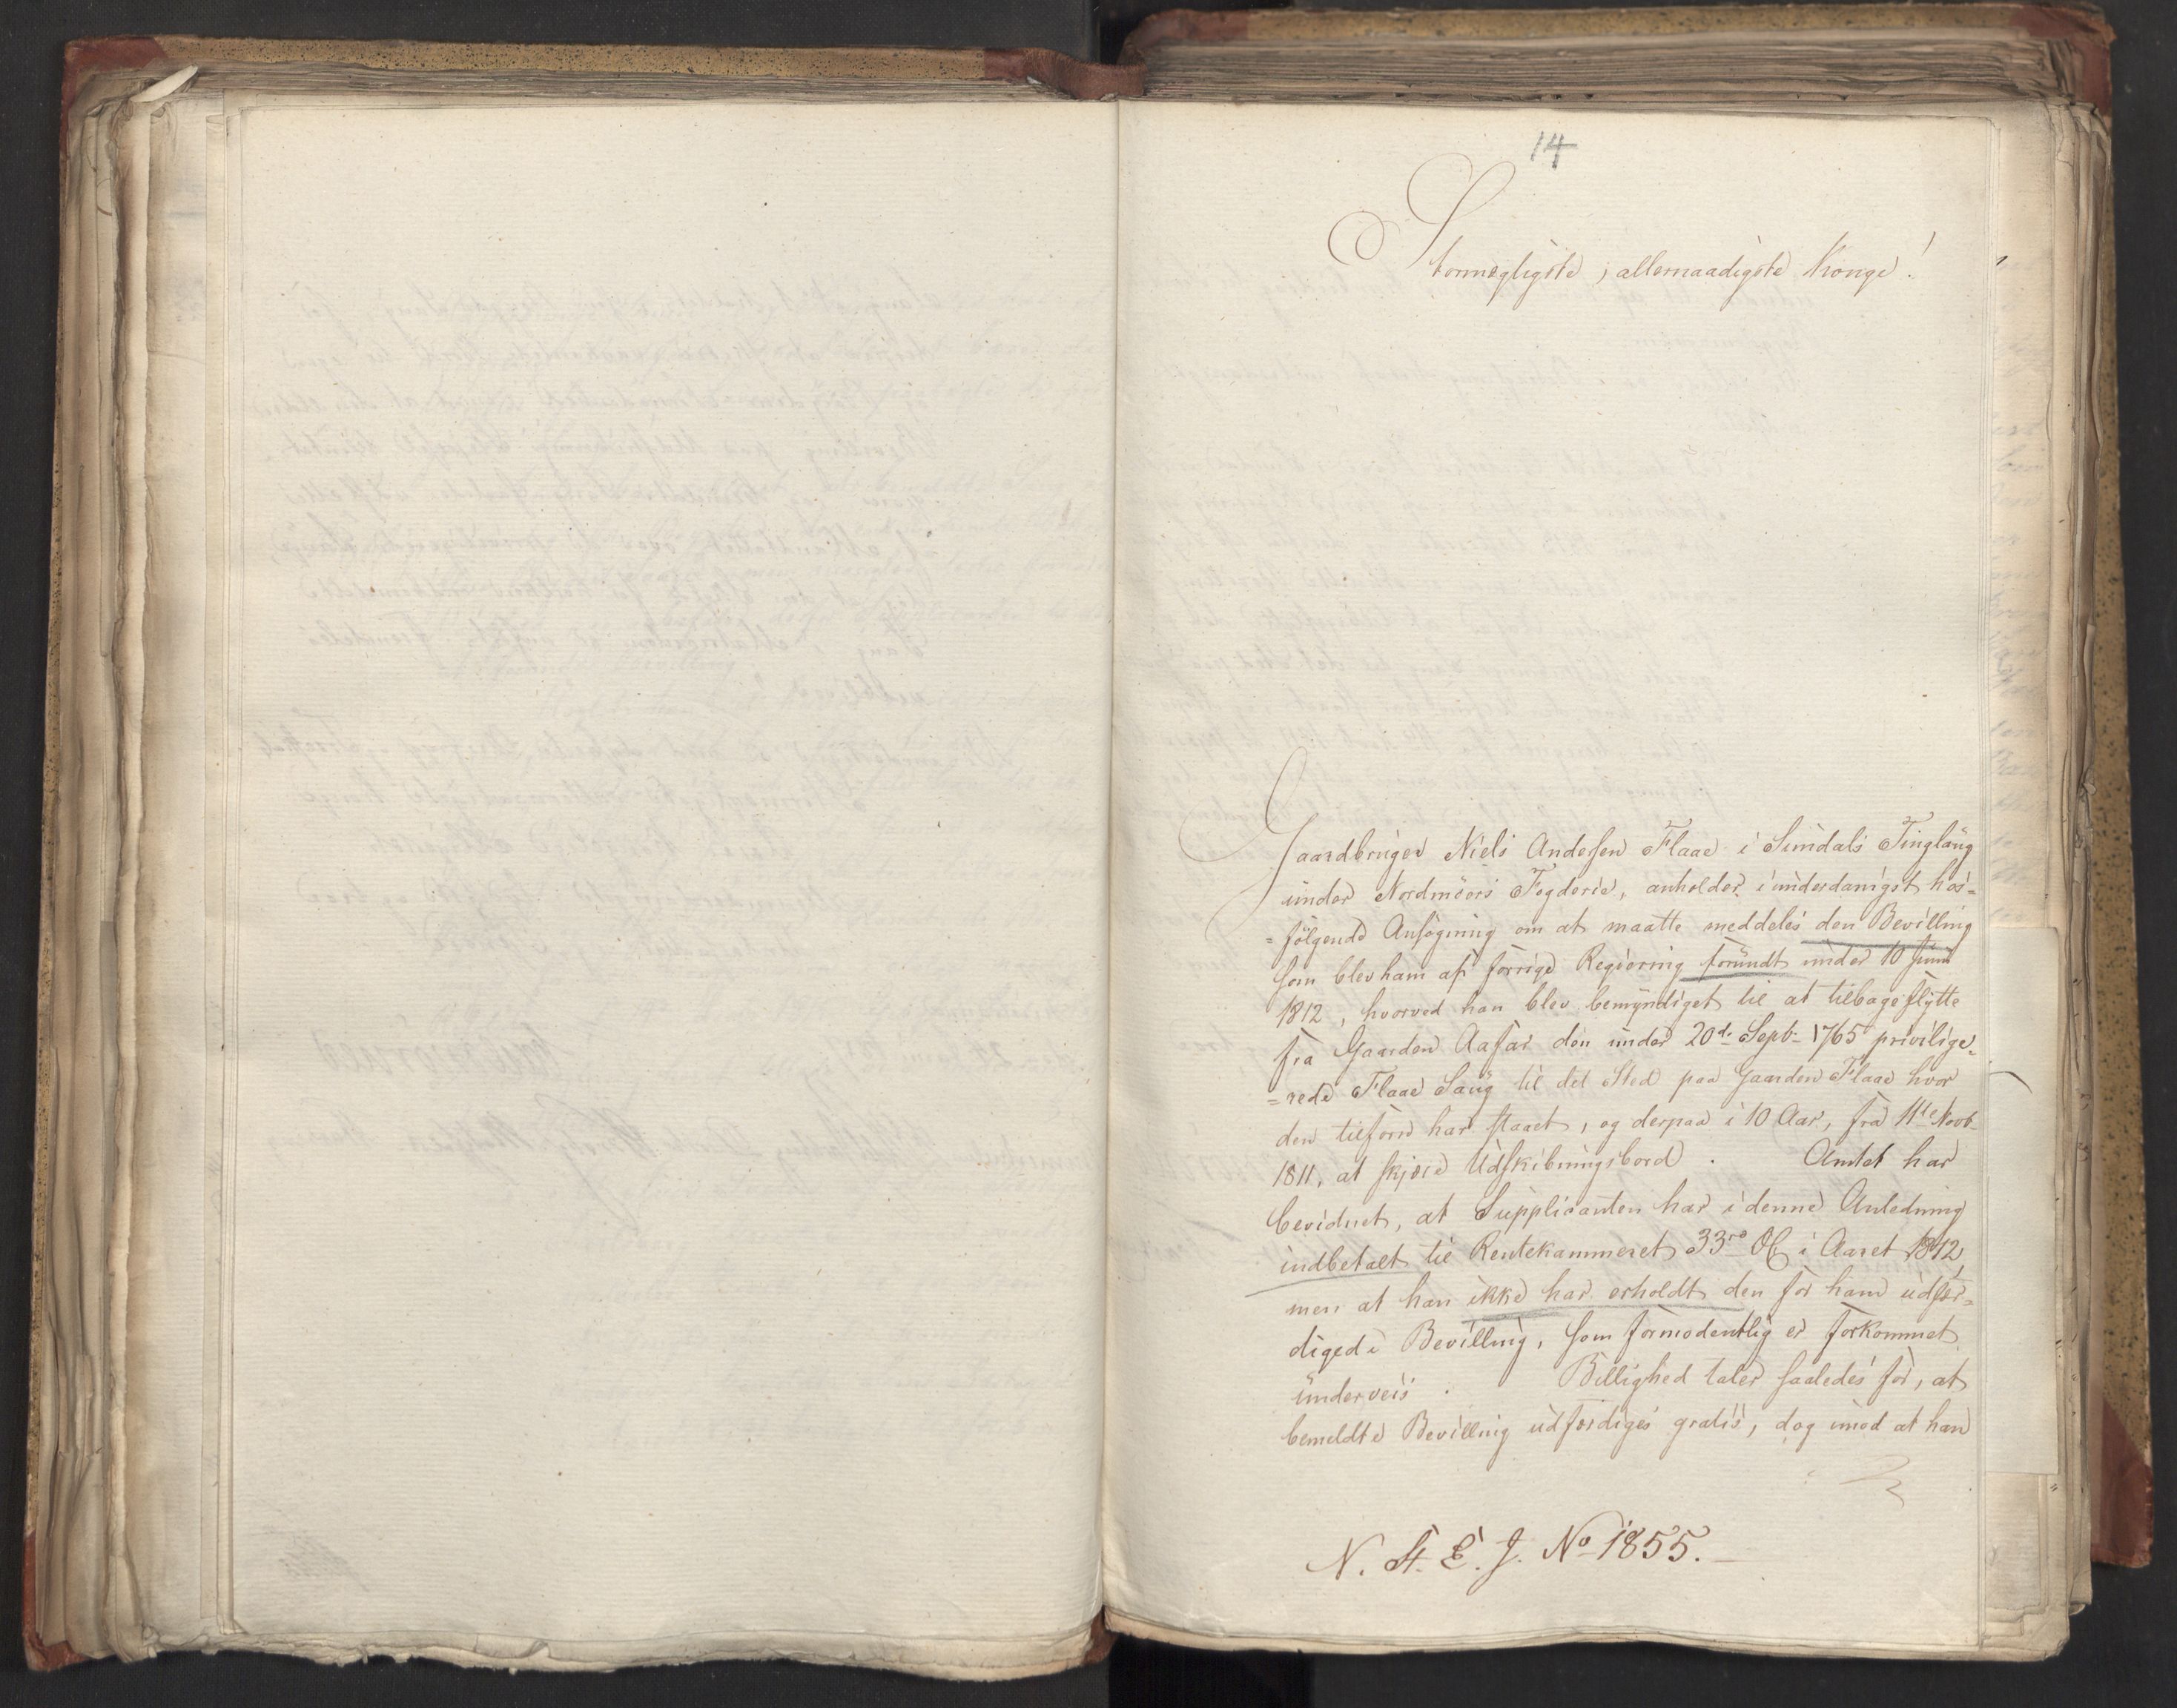 14
Stormægtigste, allernaadigste Konge!
Gaardbruger Niels Andersen Flaae i Sundals Tinglaug
under Nordmöers Fogderie, anholder i underdanigst hos-
=fölgende Ansögning om at maatte meddeles den Bevilling
som blev ham af forrige Regiering forundt under 10 Juni
1812, hvorved han blev bemyndiget til at tilbageflytte
fra Gaarden Aafar den under 20de Septr 1765 privilige-
=rede Flaae Saug til det Sted paa Gaarden Flaae hvor
den tilforn har staaet, og derpaa i 10 Aar, fra 11te Novb
1811, at skjære Udskibningsbord. Amtet har
bevidnet, at Supplicanten har i denne Anledning
indbetalt til Rentekammeret 33 i Aaret 1812,
men at han ikke har erholdt den for ham udfær-
digede Bevilling, som formodentlig er forkommet
underveis. Billighed taler saaledes for, at
bemeldte Bevilling udfærdiges gratis, dog imod at han
N. St. E. J. No 1855.